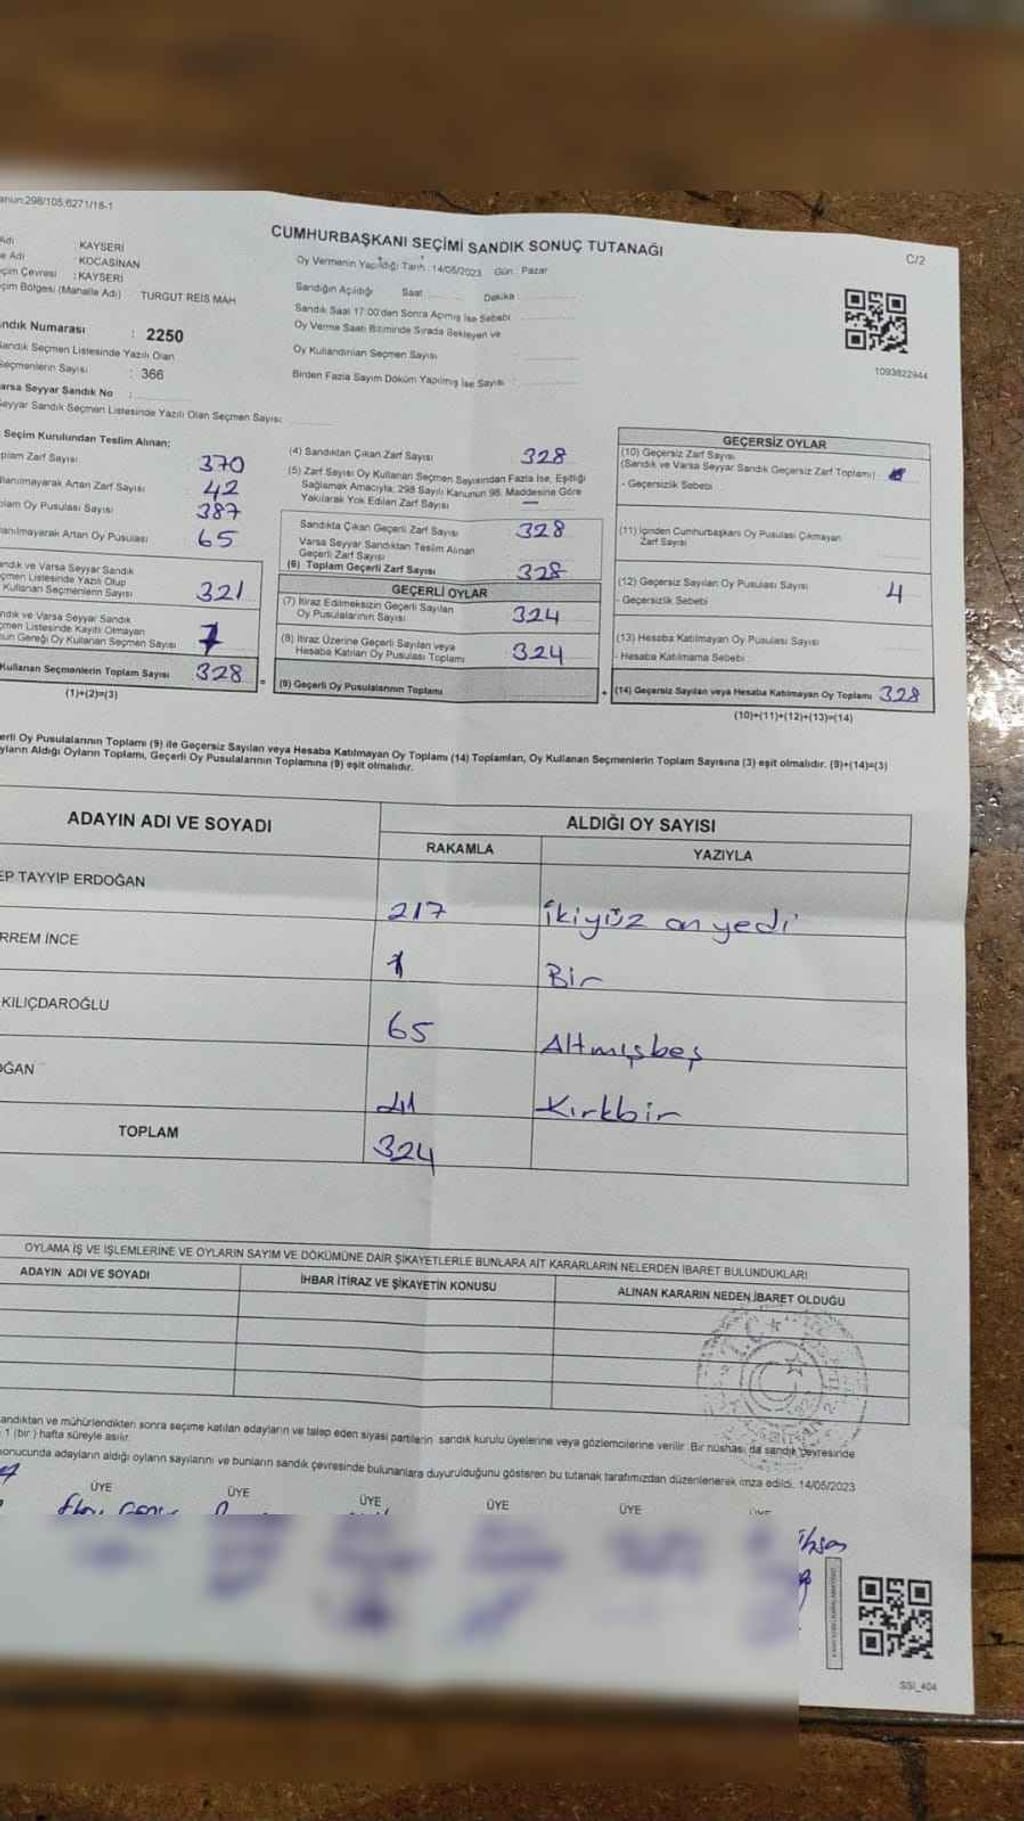 298/105,6271/16-1
CUMHURBAŞKANI SEÇİMİ SANDIK SONUÇ TUTANAĞI
C/2
Oy Vermenin Yapıldığı Tarih : 14/05/2023 Gün : Pazar
Adı : KAYSERİ
Adı : KOCASİNAN
Çevresi : KAYSERİ
Bölgesi (Mahalle Adı) TURGUT REİS MAH
Numarası : 2250
Sandık Seçmen Listesinde Yazılı Olan
Seçmenlerin Sayısı : 366
Varsa Seyyar Sandık No :
Seyyar Sandık Seçmen Listesinde Yazılı Olan Seçmen Sayısı:
Sandığın Açıldığı Saat Dakika
Sandık Saat 17:00'dan Sonra Açmış İse Sebebi
Oy Verme Saati Bitiminde Sırada Bekleyen ve
Oy Kullandırılan Seçmen Sayısı
Birden Fazla Sayım Döküm Yapılmış İse Sayısı :
1093822944
Seçim Kurulundan Teslim Alınan;
Zarf Sayısı 370
Artan Zarf Sayısı 42
Oy Pusulası Sayısı 387
Artan Oy Pusulası 65
ve Varsa Seyyar Sandık
Listesinde Yazılı Olup
Kullanan Seçmenlerin Sayısı 321
ve Varsa Seyyar Sandık
Listesinde Kayıtlı Olmayan
Gereği Oy Kullanan Seçmen Sayısı 7
Kullanan Seçmenlerin Toplam Sayısı 328
(1)+(2)=(3)
(4) Sandıktan Çıkan Zarf Sayısı 328
(5) Zarf Sayısı Oy Kullanan Seçmen Sayısından Fazla İse, Eşitliği
Sağlamak Amacıyla; 298 Sayılı Kanunun 98. Maddesine Göre
Yakılarak Yok Edilen Zarf Sayısı —
Sandıkta Çıkan Geçerli Zarf Sayısı 328
Varsa Seyyar Sandıktan Teslim Alınan
Geçerli Zarf Sayısı
(6) Toplam Geçerli Zarf Sayısı 328
GEÇERLİ OYLAR
(7) İtiraz Edilmeksizin Geçerli Sayılan
Oy Pusulalarının Sayısı 324
(8) İtiraz Üzerine Geçerli Sayılan veya
Hesaba Katılan Oy Pusulası Toplamı 324
= (9) Geçerli Oy Pusulalarının Toplamı
GEÇERSİZ OYLAR
(10) Geçersiz Zarf Sayısı
(Sandık ve Varsa Seyyar Sandık Geçersiz Zarf Toplamı)
- Geçersizlik Sebebi
(11) İçinden Cumhurbaşkanı Oy Pusulası Çıkmayan
Zarf Sayısı
(12) Geçersiz Sayılan Oy Pusulası Sayısı 4
- Geçersizlik Sebebi
(13) Hesaba Katılmayan Oy Pusulası Sayısı
- Hesaba Katılmama Sebebi
+ (14) Geçersiz Sayılan veya Hesaba Katılmayan Oy Toplamı 328
(10)+(11)+(12)+(13)=(14)
Oy Pusulalarının Toplamı (9) ile Geçersiz Sayılan veya Hesaba Katılmayan Oy Toplamı (14) Toplamları, Oy Kullanan Seçmenlerin Toplam Sayısına (3) eşit olmalıdır. (9)+(14)=(3)
Aldığı Oyların Toplamı, Geçerli Oy Pusulalarının Toplamına (9) eşit olmalıdır.
ADAYIN ADI VE SOYADI
ALDIĞI OY SAYISI
RAKAMLA YAZIYLA
TAYYIP ERDOĞAN 217 İkiyüz on yedi
İNCE 1 Bir
KILIÇDAROĞLU 65 Altmışbeş
41 Kırkbir
TOPLAM 324
OYLAMA İŞ VE İŞLEMLERİNE VE OYLARIN SAYIM VE DÖKÜMÜNE DAİR ŞİKAYETLERLE BUNLARA AİT KARARLARIN NELERDEN İBARET BULUNDUKLARI
ADAYIN ADI VE SOYADI İHBAR İTİRAZ VE ŞİKAYETİN KONUSU ALINAN KARARIN NEDEN İBARET OLDUĞU
ve mühürlendikten sonra seçime katılan adayların ve talep eden siyasi partilerin sandık kurulu üyelerine veya gözlemcilerine verilir. Bir nüshası da sandık çevresinde
1 (bir) hafta süreyle asılır.
sonucunda adayların aldığı oyların sayılarını ve bunların sandık çevresinde bulunanlara duyurulduğunu gösteren bu tutanak tarafımızdan düzenlenerek imza edildi. 14/05/2023
ÜYE ÜYE ÜYE ÜYE ÜYE ÜYE
İhsan
SSI_404